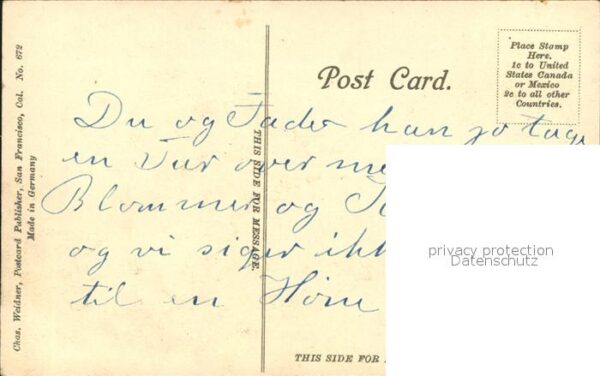 Chas. Weidner, Postcard Publisher, San Francisco, Cal. No. 672
Made in Germany
Post Card.
Place Stamp
Here.
1c to United
States Canada
or Mexico
2c to all other
Countries.
THIS SIDE FOR MESSAGE.
Du og Fader kan jo tage
en Tur over me
Blommer og
og vi siger ikk
til en
privacy protection
Datenschutz
THIS SIDE FOR